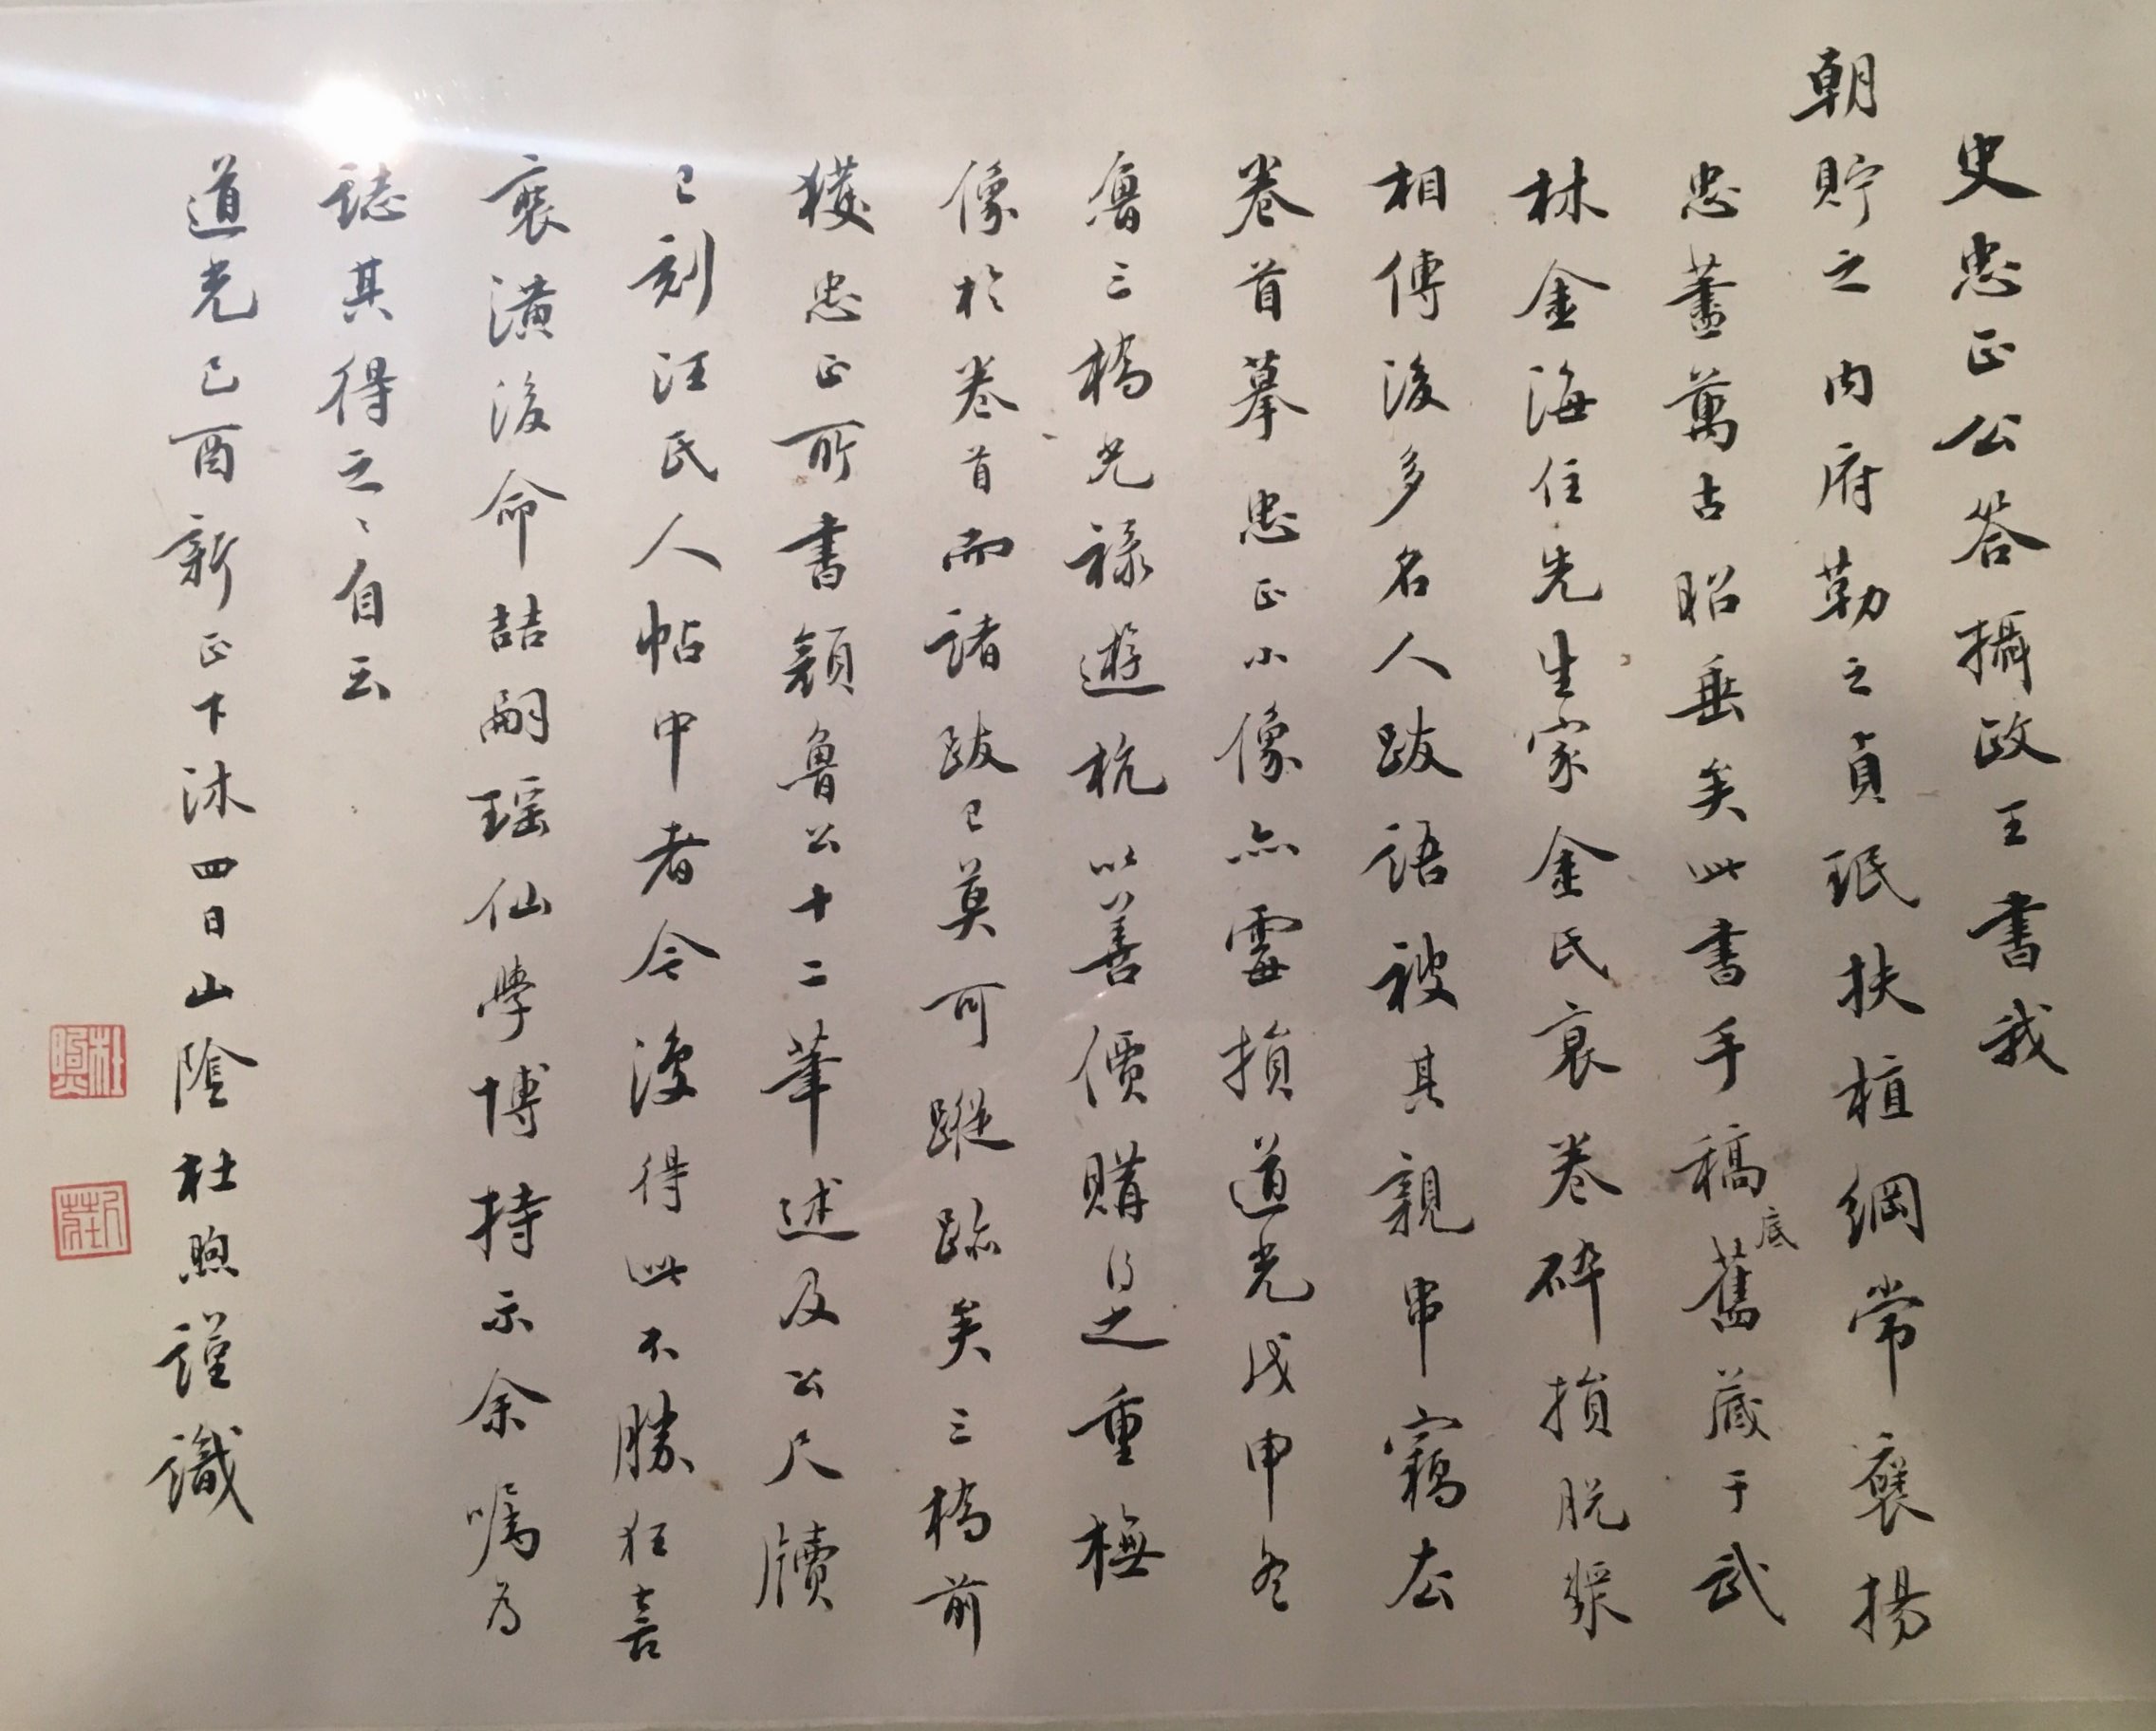 史忠正公答攝政王書我
朝貯之內府勒之貞珉扶植綱常褒揚
忠藎萬古昭垂矣此書手稿底舊藏于武
林金海住先生家金氏衰卷碎損脫裝
相傳後多名人跋語被其親串竊去
卷首摹忠正小像亦霉損道光戊申冬
魯三橋光祿遊杭以善價購得之重橅
像於卷首而諸跋已莫可蹤跡矣三橋前
獲忠正所書顏魯公十二筆述及公尺牘
已刻汪氏人帖中者今復得此不勝狂喜
裝潢後命喆嗣瑶仙學博持示余囑為
誌其得之之自云
道光己酉新正下沐四日山陰杜煦謹識
杜煦